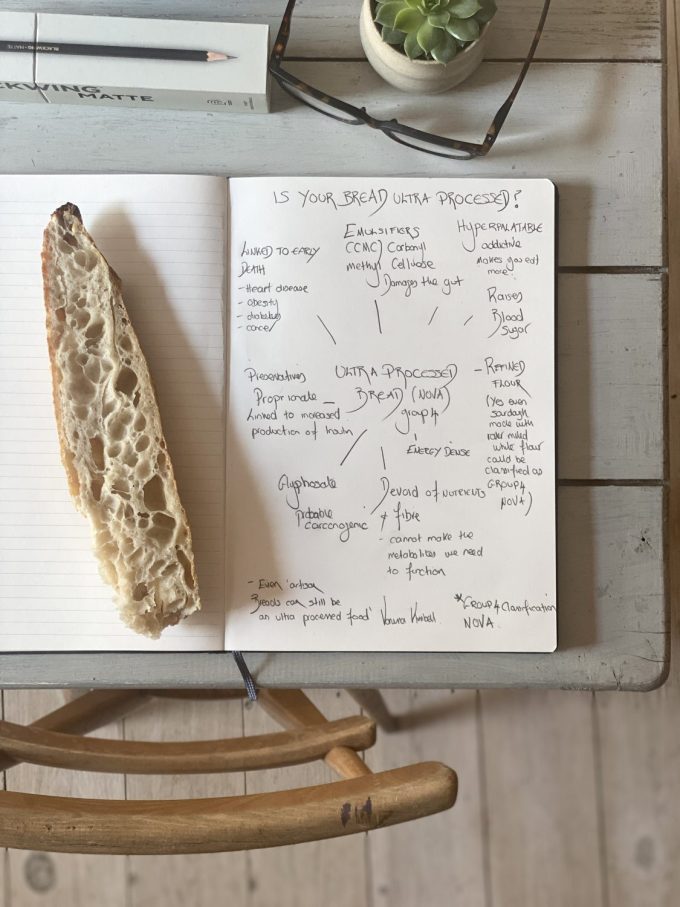 BLACKWING-MATTE
CKWING
MATTE
IS YOUR BREAD ULTRA PROCESSED?
LINKED TO EARLY
DEATH
- Heart disease
- obesity
- diabetes
- cancer
EMULSIFIERS
(CMC) Carboxyl
methyl Cellulose
Damages the gut
HYPERPALATABLE
addictive
makes you eat
more
Raises
Blood
Sugar
Preservatives
Proprionate -
Linked to increased
production of
ULTRA PROCESSED
BREAD (NOVA)
group 4
ENERGY DENSE
- REFINED
FLOUR
(Yes even
sourdough
made with
roller milled
white flour
could be
classified as
GROUP 4
NOVA)
Glyphosate
Probable
carconogenic
Devoid of NUTRIENTS
+ fibre
- cannot make the
metabolites we need
to function
- Even 'artisan
Breads can still be
an ultra processed food'
Vanessa Kimbell
*GROUP 4 Classification
NOVA